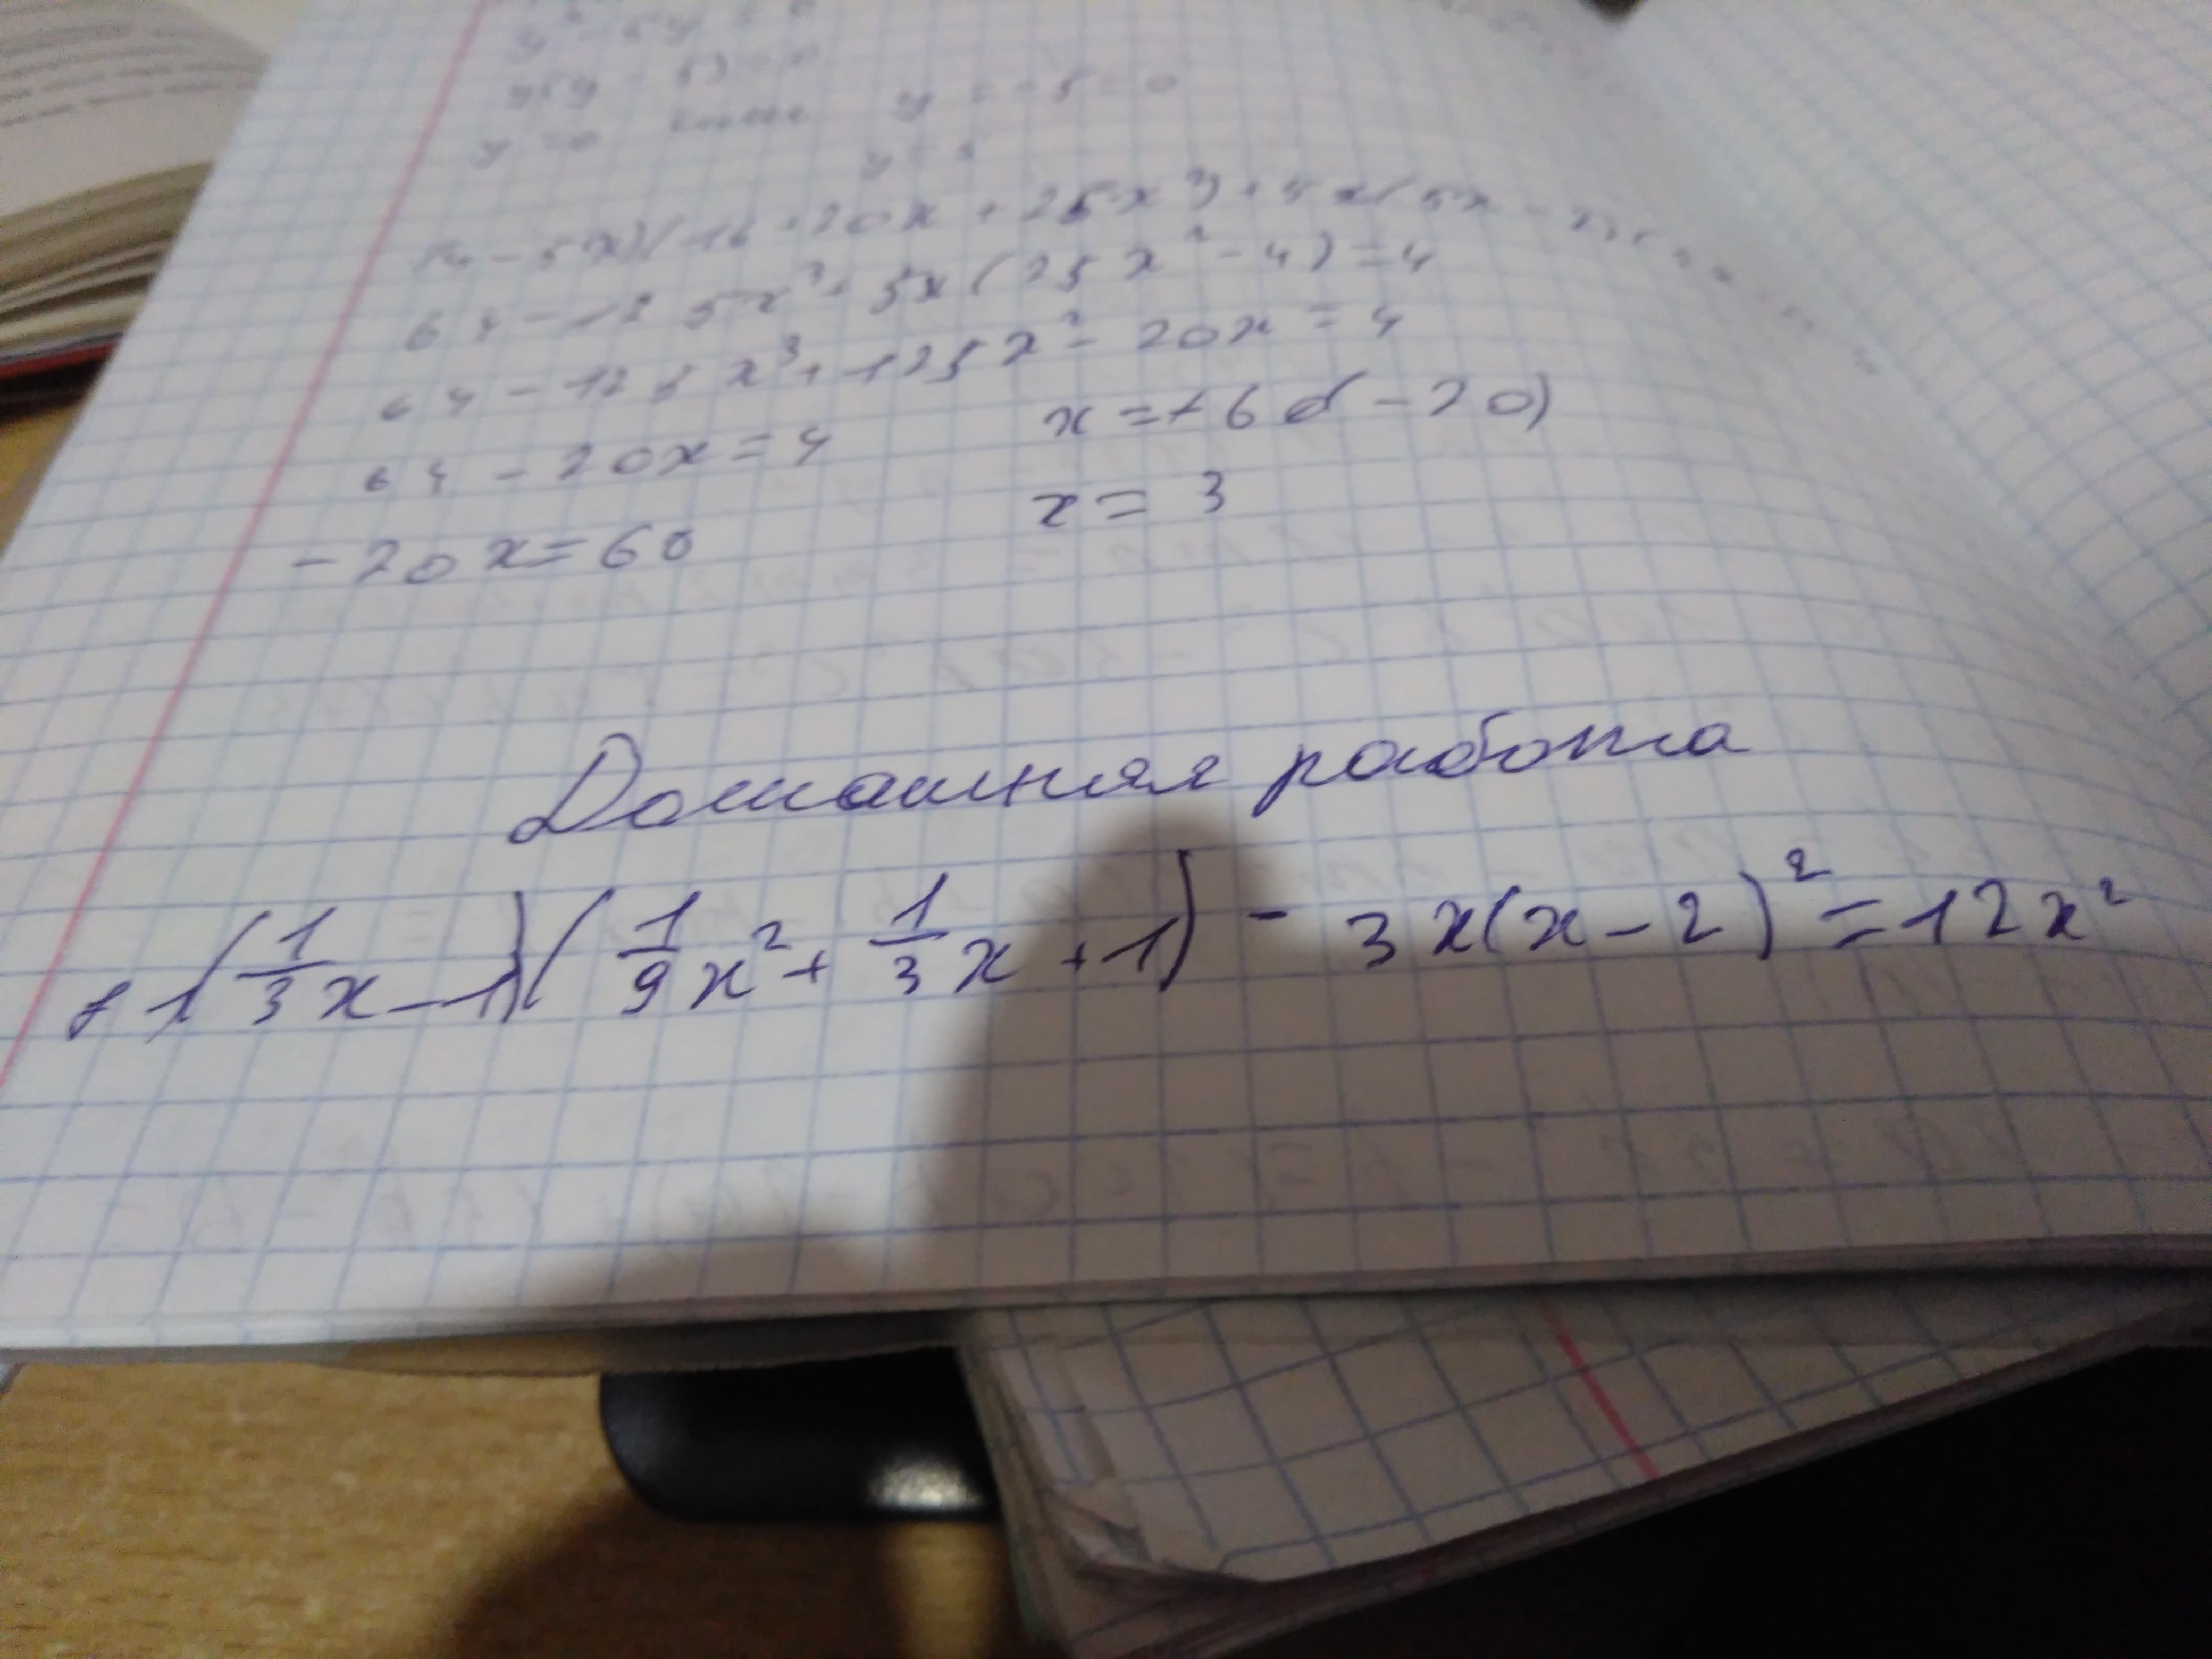 y² - 5y = 0
y(y - 5) = 0
y = 0 или y = - 5 = 0
y = 5
(4 - 5x)(16 + 20x + 25x²) + 5x(5x - 2)(
64 - 125x³ + 5x(25x² - 4) = 4
64 - 125x³ + 125x² - 20x = 4
64 - 20x = 4 x = +60(-20)
-20x = 60 x = 3
Домашняя работа
81(1/3x - 1)(1/9x² + 1/3x + 1) - 3x(x - 2)² = 12x²